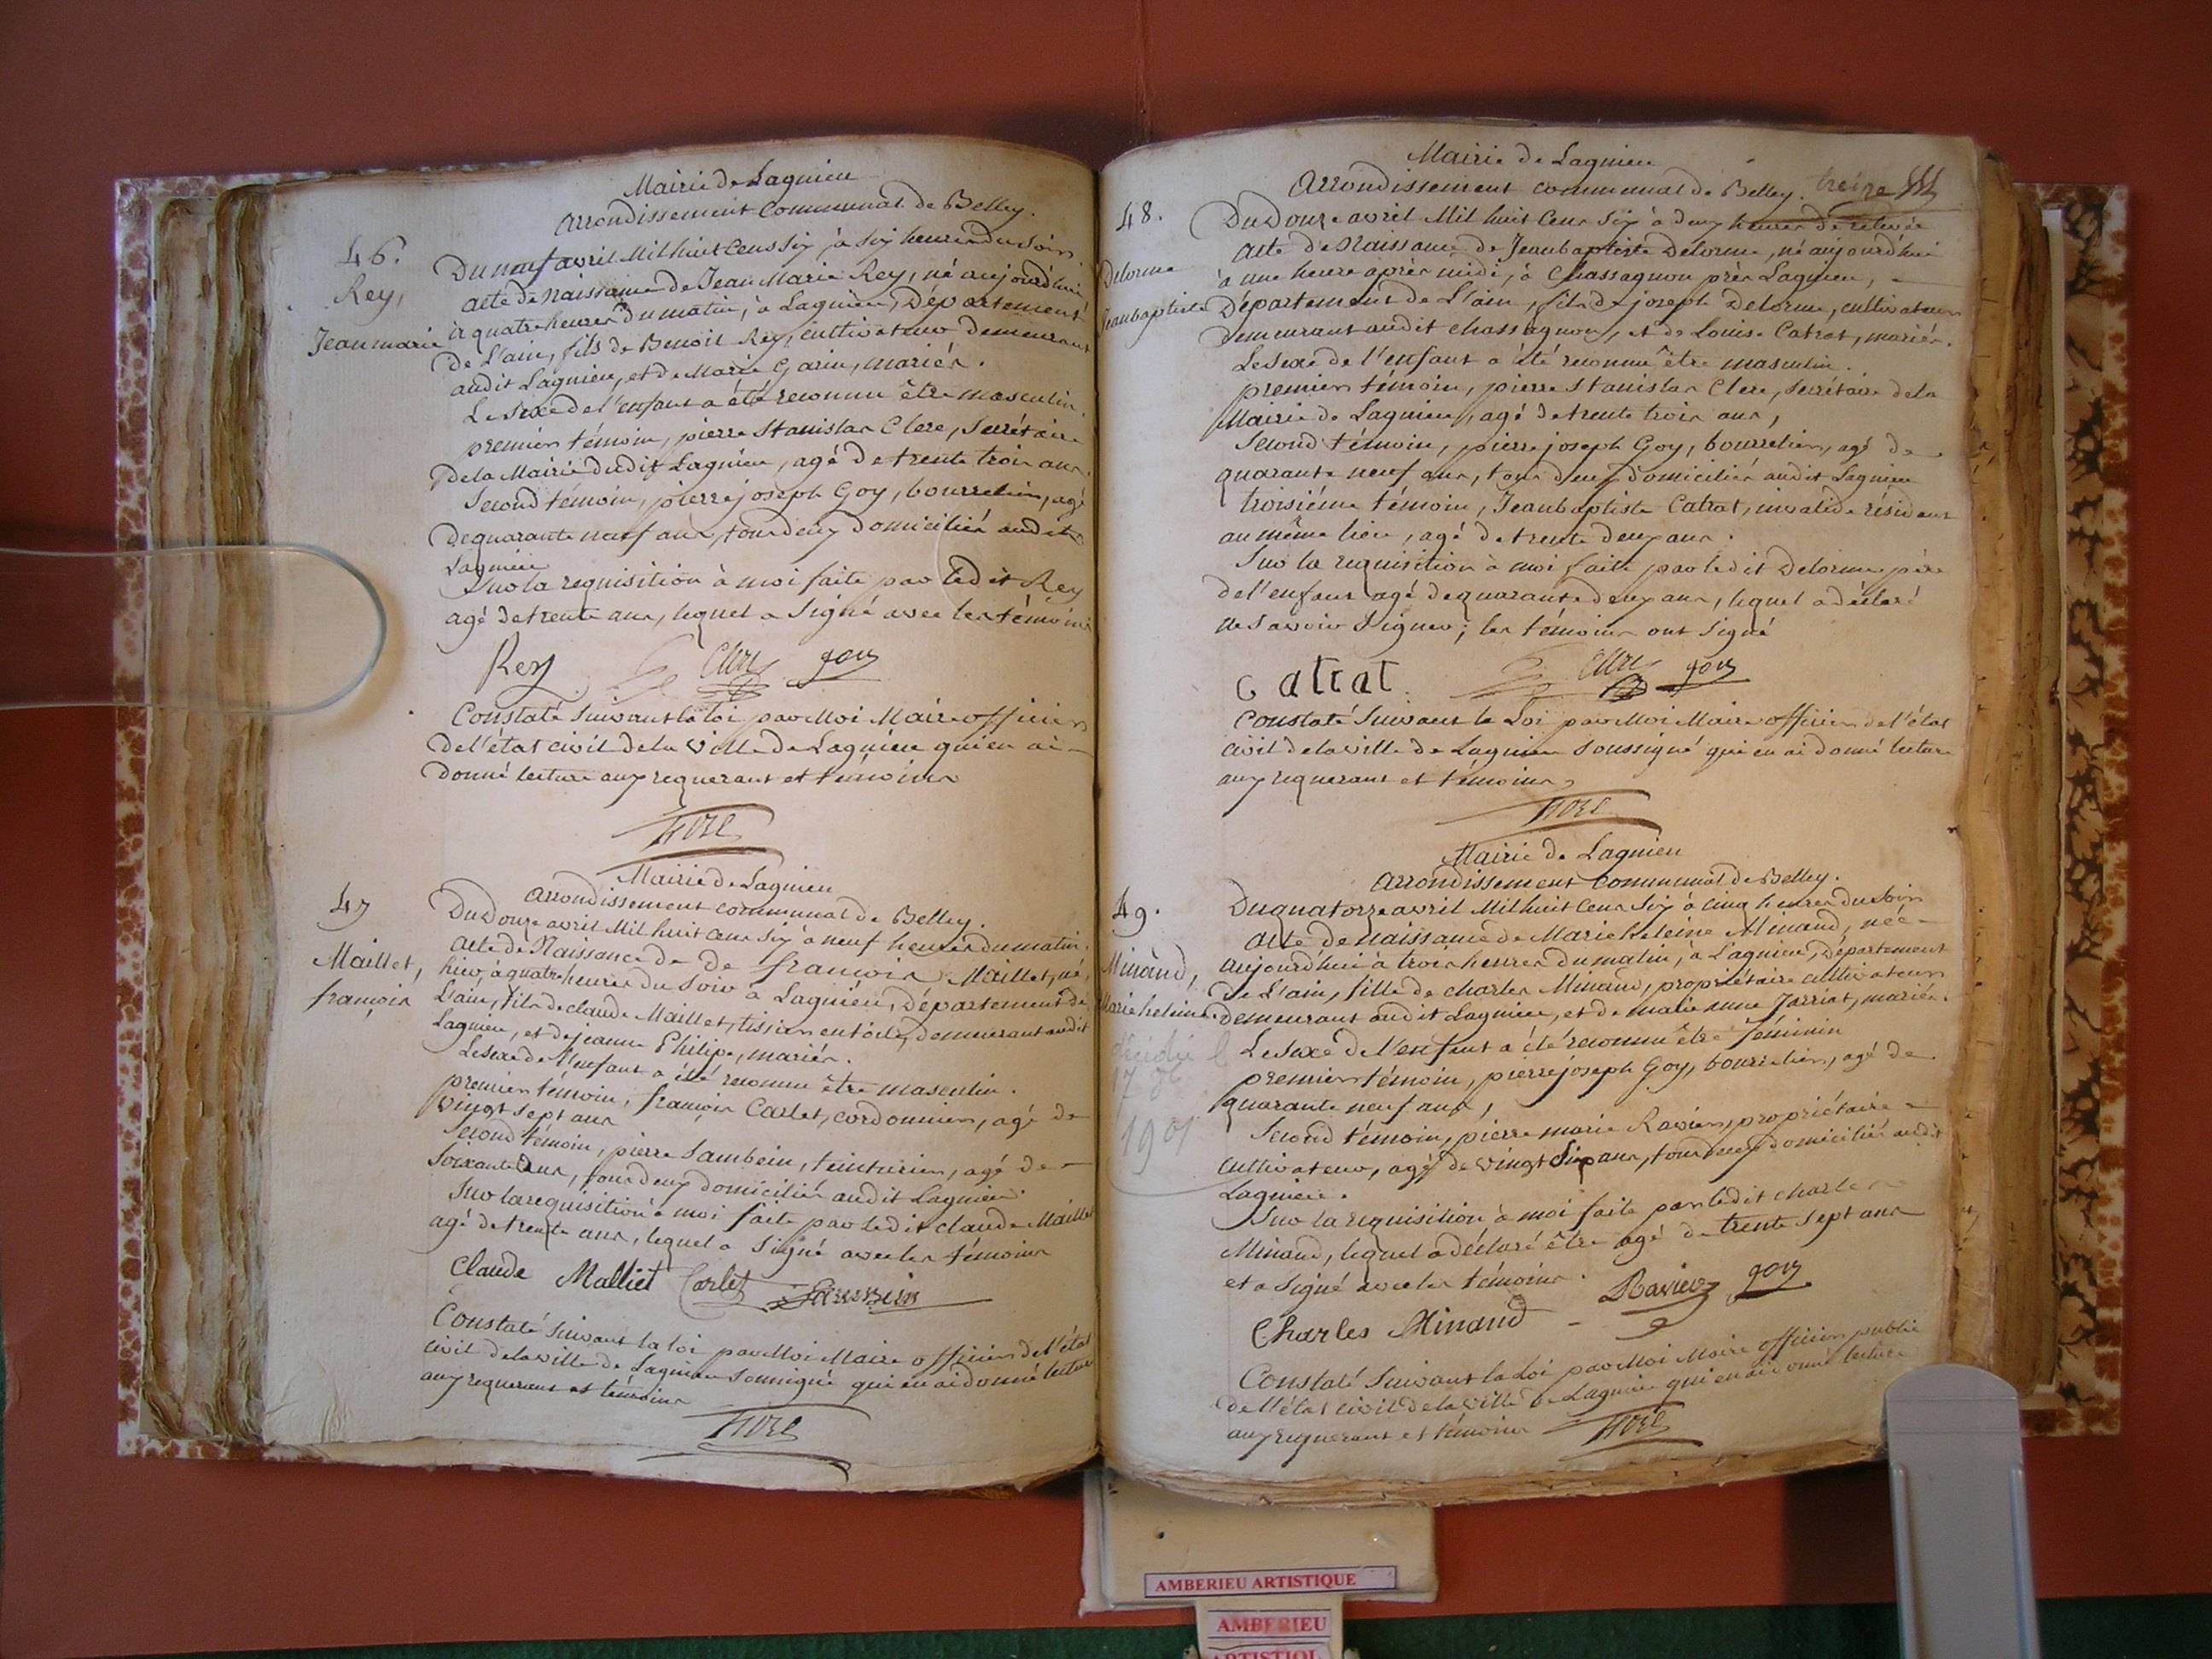 Mairie de Lagnieu
Arrondissement Communal de Belley.
46.
Rey,
Jean marie
Du neuf avril Mil huit Cens Six, à six heures du Soir
acte de Naissance de Jean Marie Rey, né aujourd'hui
à quatre heures du matin, à Lagnieu, Département
de L'ain, fils de Benoit Rey, cultivateur demeurant
audit Lagnieu, et de Marie Garin, mariés.
Le Sexe de l'enfant a été reconnu être masculin.
premier témoin, pierre Stanislas Clerc, Secrétaire
de la Mairie dudit Lagnieu, agé de trente trois ans.
Second témoin, pierre joseph Goy, bourrelier, agé
de quarante neuf ans, tous deux domiciliés audit
Lagnieu
Sur la requisition à moi faite par ledit Rey
agé de trente ans, lequel a Signé avec les témoins
Rey Clerc goy
Constaté Suivant la loi par Moi Maire officier
de l'état civil de la ville de Lagnieu qui en ai
donné lecture aux requerant et témoins
Mairie de Lagnieu
arrondissement communal de Belley.
47
Maillet,
françois
Du Douze avril Mil huit Cens Six à neuf heures du matin.
acte de Naissance de de françois Maillet, né,
hier, à quatre heures du Soir à Lagnieu, Département de
L'ain, fils de claude Maillet, tissier en toile, demeurant audit
Lagnieu, et de jeanne Philipe, mariés.
Le Sexe de l'enfant a été reconnu être masculin.
premier témoin, françois Carlet, cordonnier, agé de
vingt Sept ans
Second témoin, pierre Sambein, teinturier, agé de
Soixante ans, tous deux domiciliés audit Lagnieu.
Sur la requisition à moi faite par ledit claude Maillet
agé de trente ans, lequel a Signé avec les témoins
Claude Malliet Carlet
Constaté Suivant la loi par Moi Maire officier de l'état
civil de la ville de Lagnieu Soussigné qui en ai donné lecture
aux requerant et témoins
Mairie de Lagnieu
Arrondissement communal de Belley. treize
48.
Delorme
Jeanbaptiste
Du Douze avril Mil huit Cens Six à deux heures de relevée
acte de Naissance de Jeanbaptiste Delorme, né aujourd'hui
à une heure après midi, à Chassagnon près Lagnieu,
Département de L'ain, fils de joseph Delorme, cultivateur
Demeurant audit chassagnon, et de Louise Catrat, mariés.
Le Sexe de l'enfant a été reconnu être masculin.
premier témoin, pierre Stanislas Clerc, Secrétaire de la
Mairie de Lagnieu, agé de trente trois ans,
Second témoin, pierre joseph Goy, bourrelier, agé de
quarante neuf ans, tous deux domiciliés audit Lagnieu
troisiéme témoin, Jeanbaptiste Catrat, invalide résident
au même lieu, agé de trente deux ans.
Sur la requisition à moi faite par ledit Delorme père
de l'enfant agé de quarante deux ans, lequel a déclaré
ne Savoir Signer; les témoins ont Signé
Catrat Clerc goy
Constaté Suivant la Loi par Moi Maire officier de l'état
civil de la ville de Lagnieu Soussigné qui en ai donné lecture
aux requerant et témoins
Mairie de Lagnieu
arrondissement Communal de Belley.
49.
Minand,
Marie heleine
décédée
17
1901
Du quatorze avril Mil huit Cens Six à cinq heures du Soir
acte de Naissance de Marie heleine Minand, née
aujourd'hui à trois heures du matin, à Lagnieu, Département
de L'ain, fille de charles Minand, propriétaire cultivateur
demeurant audit Lagnieu, et de marie anne Jarriat, mariés.
Le Sexe de l'enfant a été reconnu être féminin
premier témoin, pierre joseph Goy, bourrelier, agé de
quarante neuf ans,
Second témoin, pierre marie Ravier, propriétaire
cultivateur, agé de vingt Six ans, tous deux domiciliés audit
Lagnieu.
Sur la requisition à moi faite par ledit charles
Minand, lequel a déclaré être agé de trente Sept ans
et a Signé avec les témoins.
Charles Minand Ravier goy
Constaté Suivant la Loi par Moi Maire officier public
de l'état civil de la ville de Lagnieu qui en ai donné lecture
aux requerant et témoins
AMBERIEU ARTISTIQUE
AMBERIEU